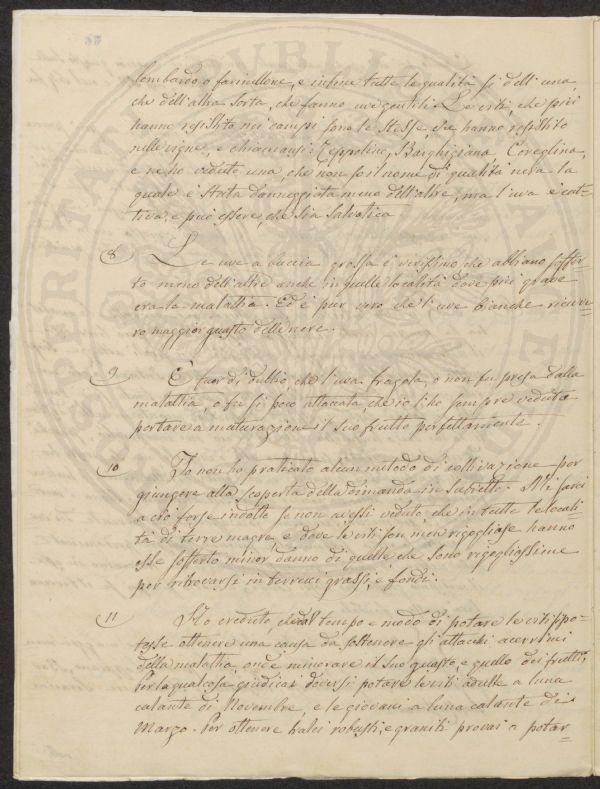 lombardo, o farinellone, e infine tutte le qualità sì dell'una,
che dell'altra sorta, che fanno uve gentili. Le viti, che più
hanno resistito nei campi sono le stesse che hanno resistito
nelle vigne, e chiamansi: Zeppolino, Barghigiana, Coreglina,
e ne ho veduto una, che non so il nome di qualità nera la
quale è stata danneggiata meno dell'altre, ma l'uva è cat-
tiva, e può essere, che sia salvatica.
8 Le uve a buccia grossa è verissimo che abbiano soffer-
to meno dell'altre anche in quelle località dove più grave
era la malattia. Ed è pur vero che l'uve bianche riceve-
ro maggior guasto delle nere.
9 È fuor di dubbio, che l'uva fragola, o non fu presa dalla
malattia, o fu sì poco attaccata che io l'ho sempre veduta
portare a maturazione il suo frutto perfettamente.
10 Io non ho praticato alcun metodo di coltivazione per
giungere alla scoperta della dimanda in subietto. Mi sarei
a ciò forse indotto se non avessi veduto che in tutte le locali
tà di terre magre, e dove le viti son men rigogliose hanno
esse sofferto minor danno di quelle che sono rigogliosissime
per ritrovarsi in terreni grassi, e fondi.
11 Ho creduto, che dal tempo e modo di potare le viti si po-
tesse ottenere una causa da sostenere gli attacchi acerrimi
della malattia, onde minorare il suo guasto, e quello dei frutti;
Perlaqualcosa giudicai doversi potare le viti adulte a luna
calante di Novembre, e le giovani a luna calante di
Marzo. Per ottenere tralci robusti, e graniti provai a potar-